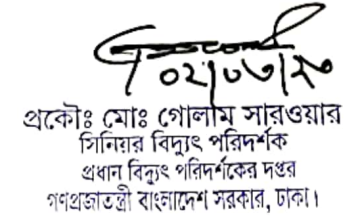 ০২/০৩/২০
প্রকৌঃ মোঃ গোলাম সারওয়ার
সিনিয়র বিদ্যুৎ পরিদর্শক
প্রধান বিদ্যুৎ পরিদর্শকের দপ্তর
গণপ্রজাতন্ত্রী বাংলাদেশ সরকার, ঢাকা।